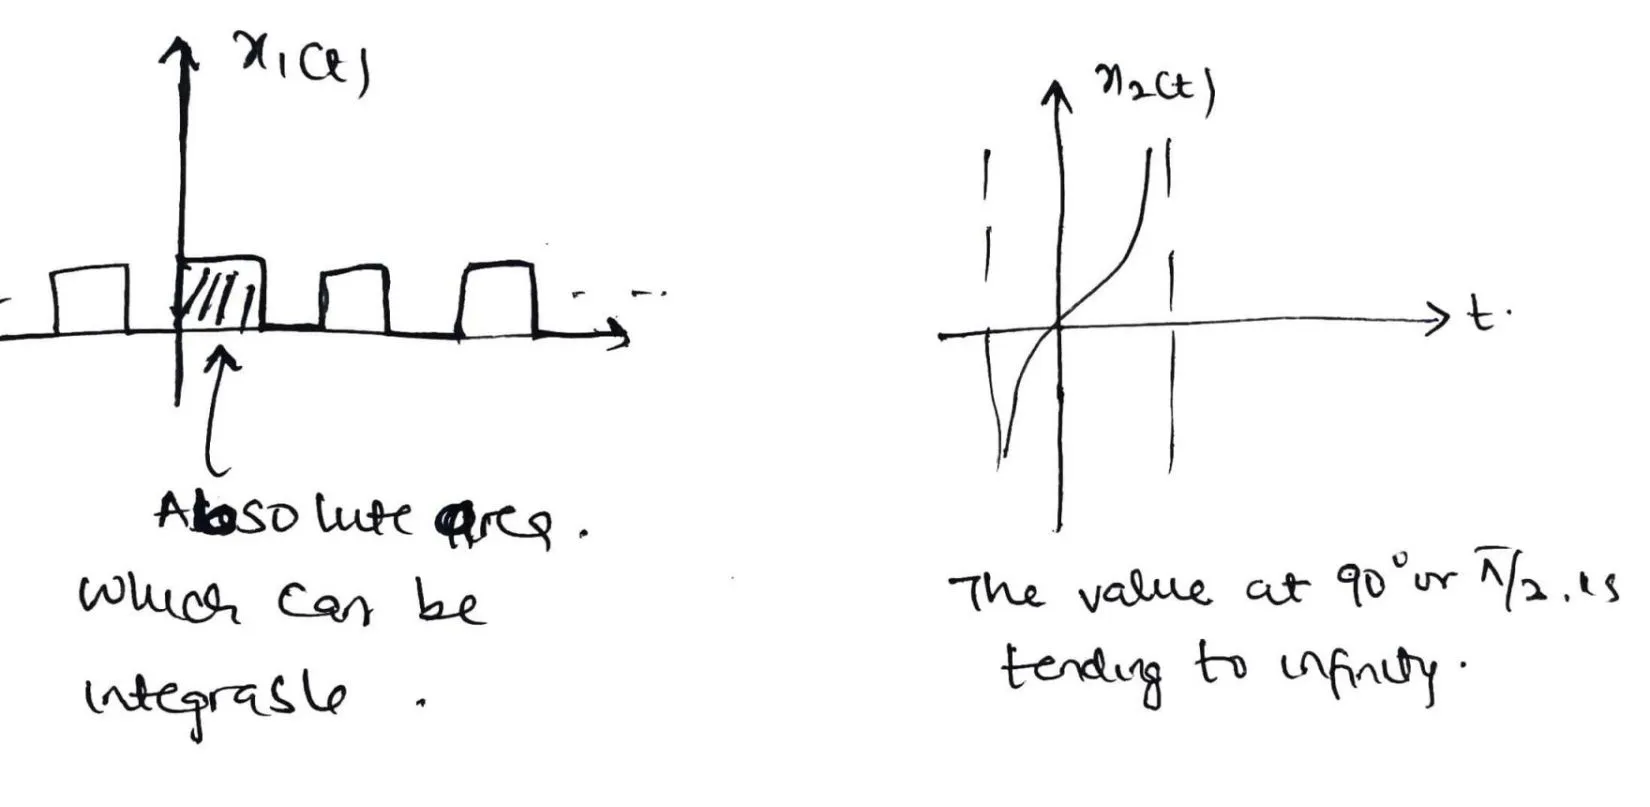 x₁(t)
x₂(t)
t.
Absolute area.
which can be
integrable.
The value at 90° or π/2. is
tending to infinity.